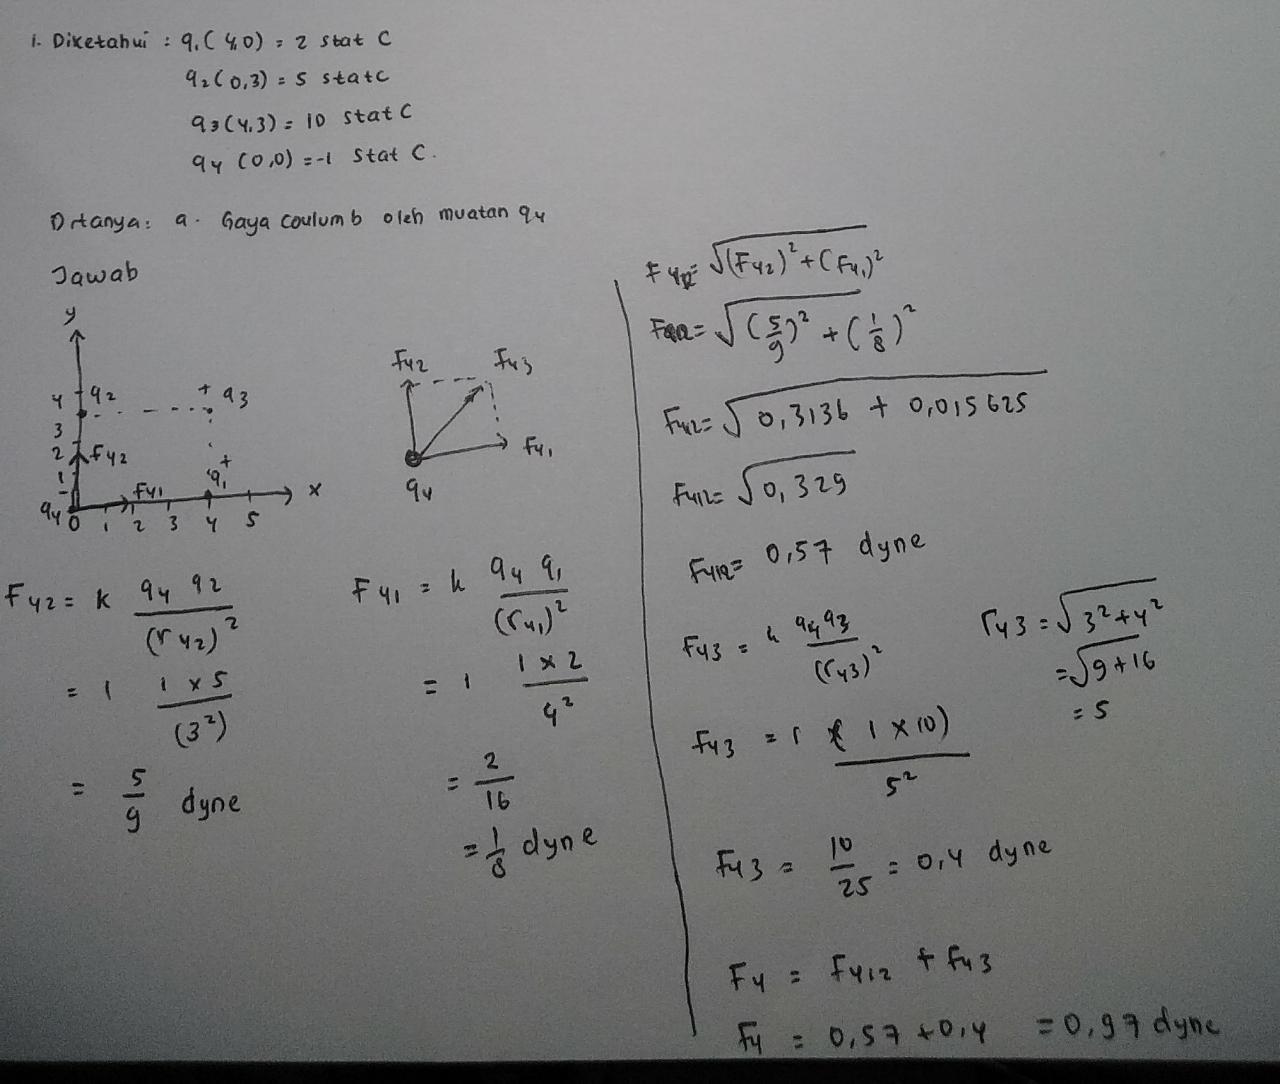 1. Diketahui : q1 (4,0) = 2 stat C
q2 (0,3) = 5 statc
q3 (4,3) = 10 stat C
q4 (0,0) = -1 stat C.
Ditanya: a. Gaya coulumb oleh muatan q4
Jawab
y
4 q2 + q3
3
2 F42
1 q1 +
q4 F41 x
0 1 2 3 4 5
F42 F43
F41
q4
F42 = k q4 q2 / (r42)²
= 1 1 x 5 / (3²)
= 5/9 dyne
F41 = k q4 q1 / (r41)²
= 1 1 x 2 / 4²
= 2/16
= 1/8 dyne
F412 = √(F42)² + (F41)²
= √(5/9)² + (1/8)²
F412 = √0,3136 + 0,015625
F412 = √0,329
F412 = 0,57 dyne
F43 = k q4 q3 / (r43)²
r43 = √3² + 4²
= √9 + 16
= 5
F43 = 1 (1 x 10) / 5²
F43 = 10/25 = 0,4 dyne
F4 = F412 + F43
F4 = 0,57 + 0,4 = 0,97 dyne